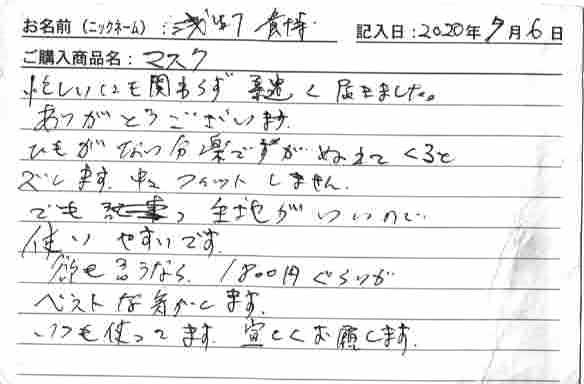 お名前（ニックネーム）：浅 貴博 記入日：2020年9月6日
ご購入商品名：マスク
忙しいにも関わらず 早速く 届きました。
ありがとうございます。
ひもがない分楽ですが ぬれてくると
ズレます. 中々 フィットしません.
でも 生地がいいので
使い やすいです.
欲を言うなら. 1800円ぐらいが
ベストな気がします.
いつも使ってます. 宜しくお願します.